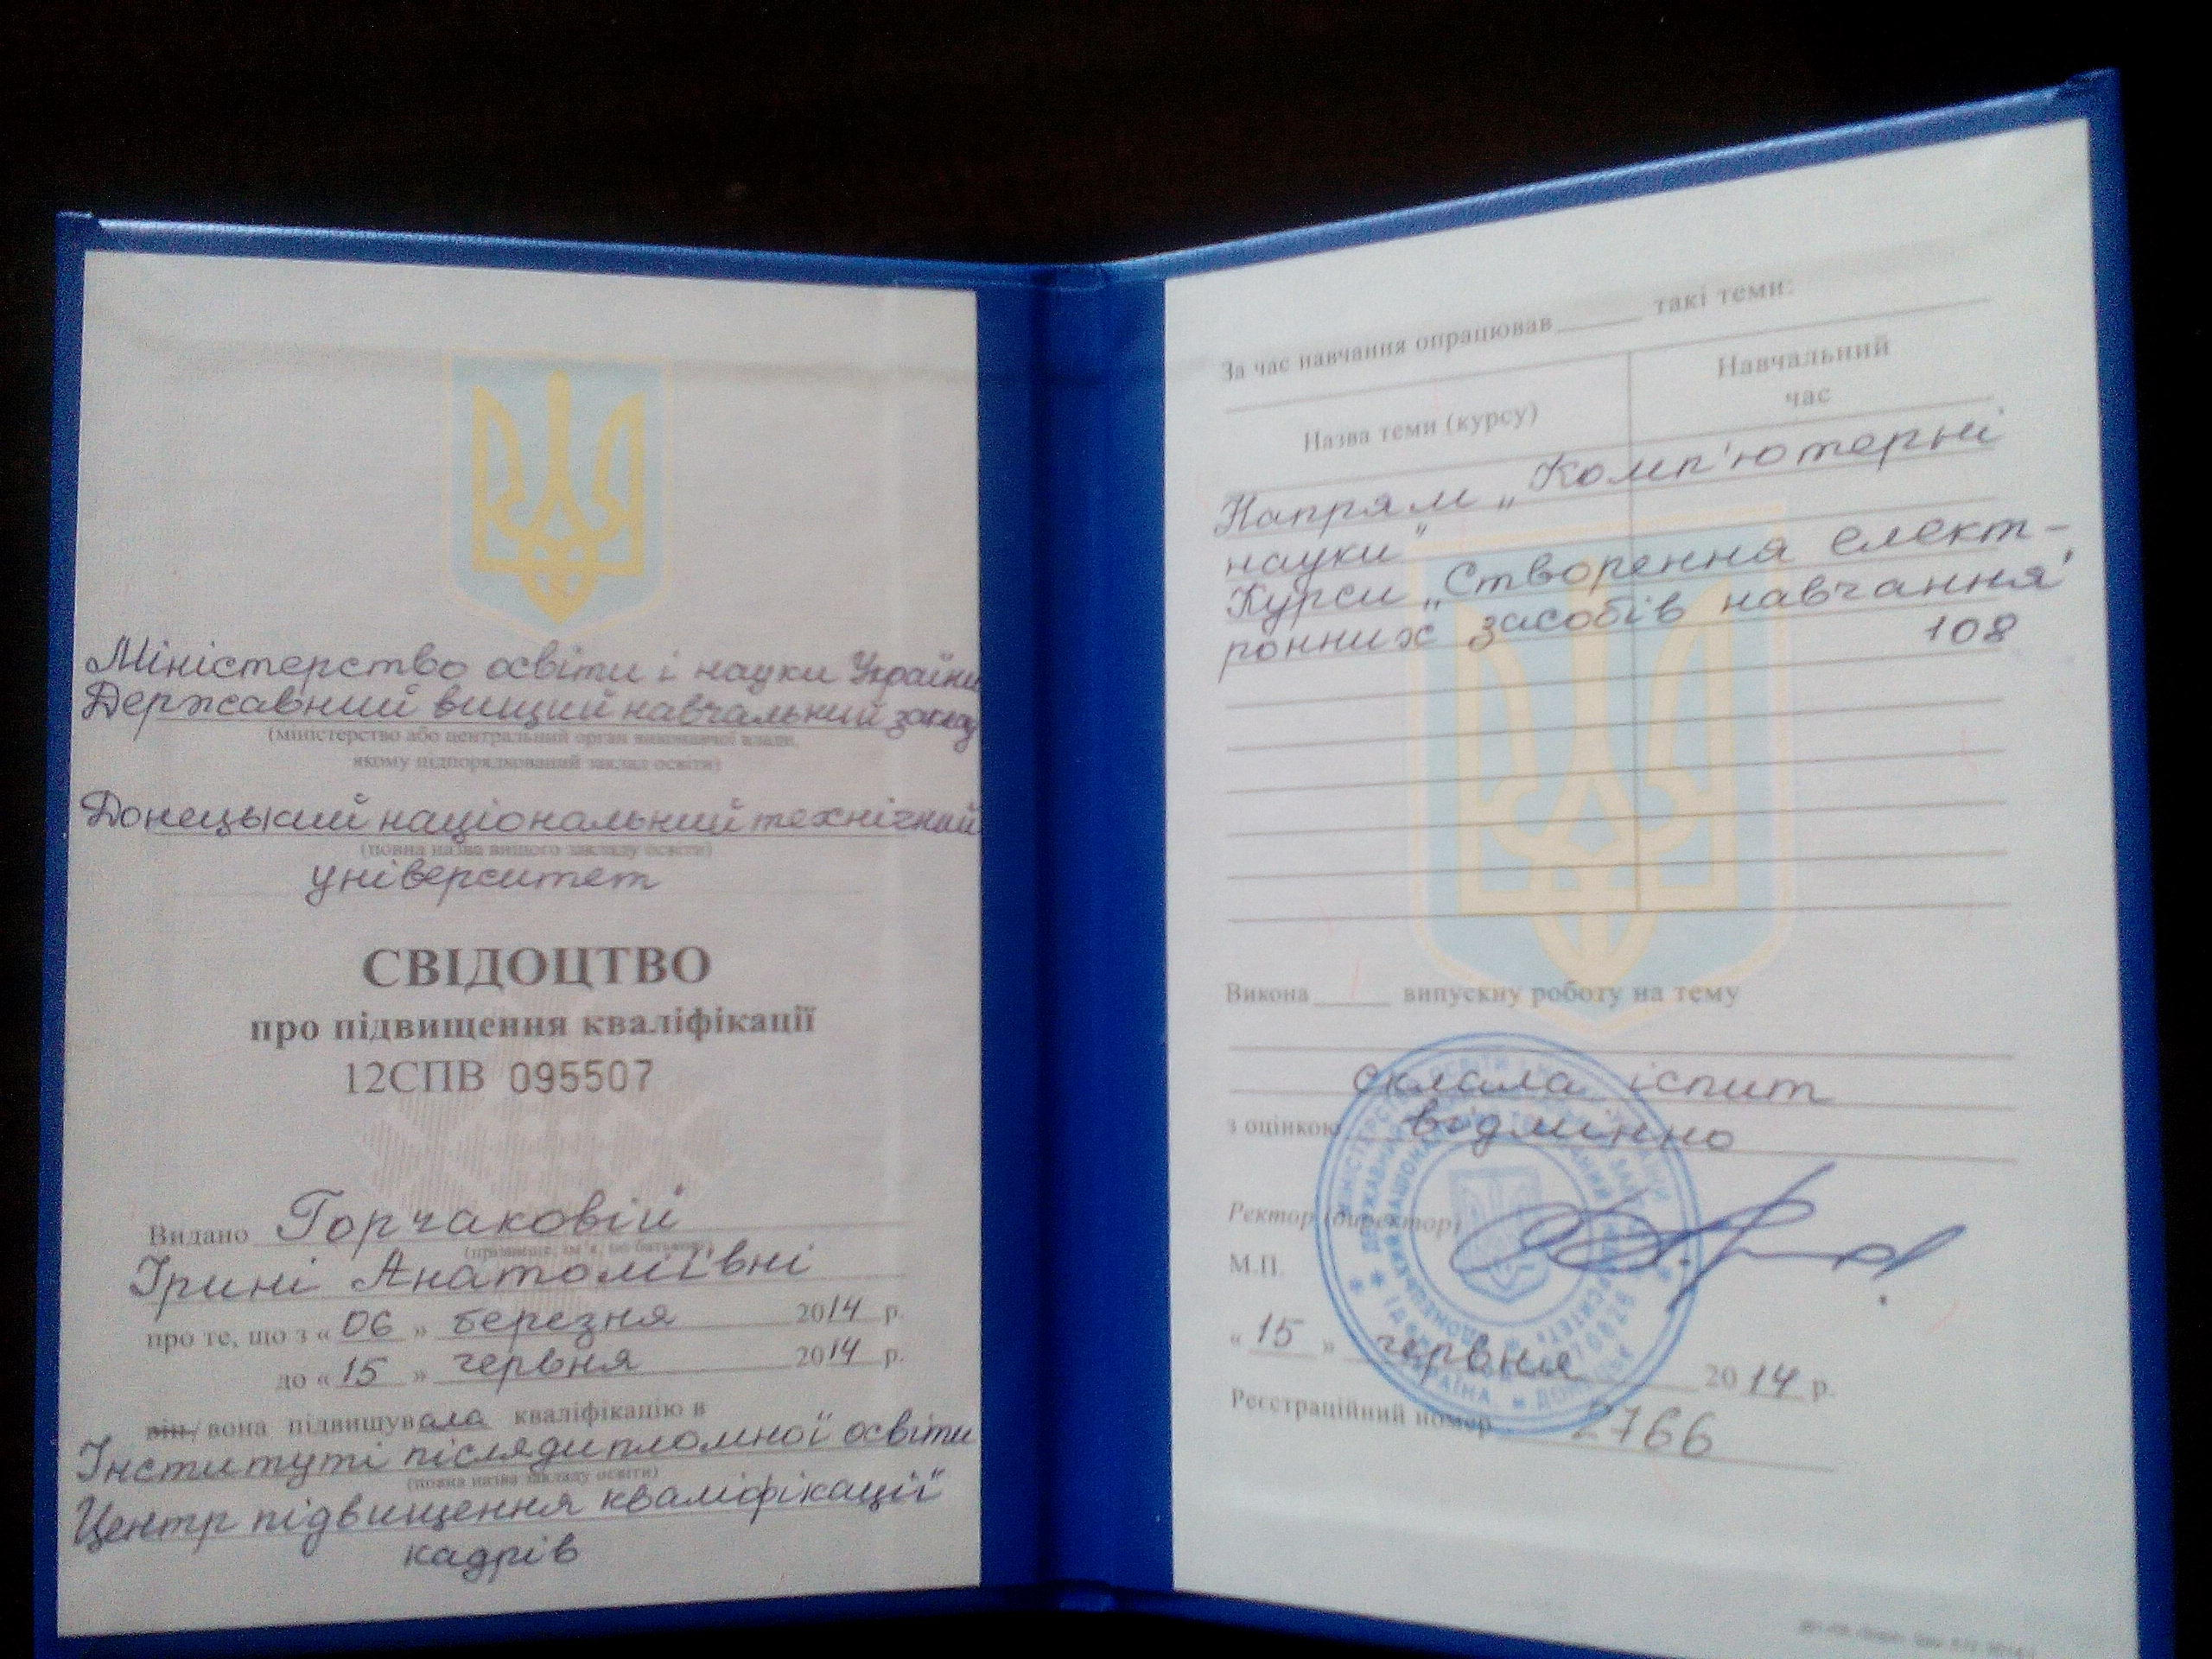 Міністерство освіти і науки України
Державний вищий навчальний заклад
(міністерство або центральний орган виконавчої влади,
якому підпорядкований заклад освіти)
Донецький національний технічний
(повна назва вищого закладу освіти)
університет
СВІДОЦТВО
про підвищення кваліфікації
12СПВ 095507
Видано Горчаковій
(прізвище, ім'я, по батькові)
Ірині Анатоліївні
про те, що з « 06 » березня 2014 р.
до « 15 » червня 2014 р.
він/вона підвищувала кваліфікацію в
Інституті післядипломної освіти
(повна назва закладу освіти)
Центр підвищення кваліфікації
кадрів
За час навчання опрацював такі теми:
Назва теми (курсу)
Навчальний
час
Напрям „Комп'ютерні
науки"
Курси „Створення елект-
ронних засобів навчання"
108
Викона випускну роботу на тему
склала іспит
з оцінкою відмінно
Ректор (директор)
М.П.
« 15 » червня 2014 р.
Реєстраційний номер 2766